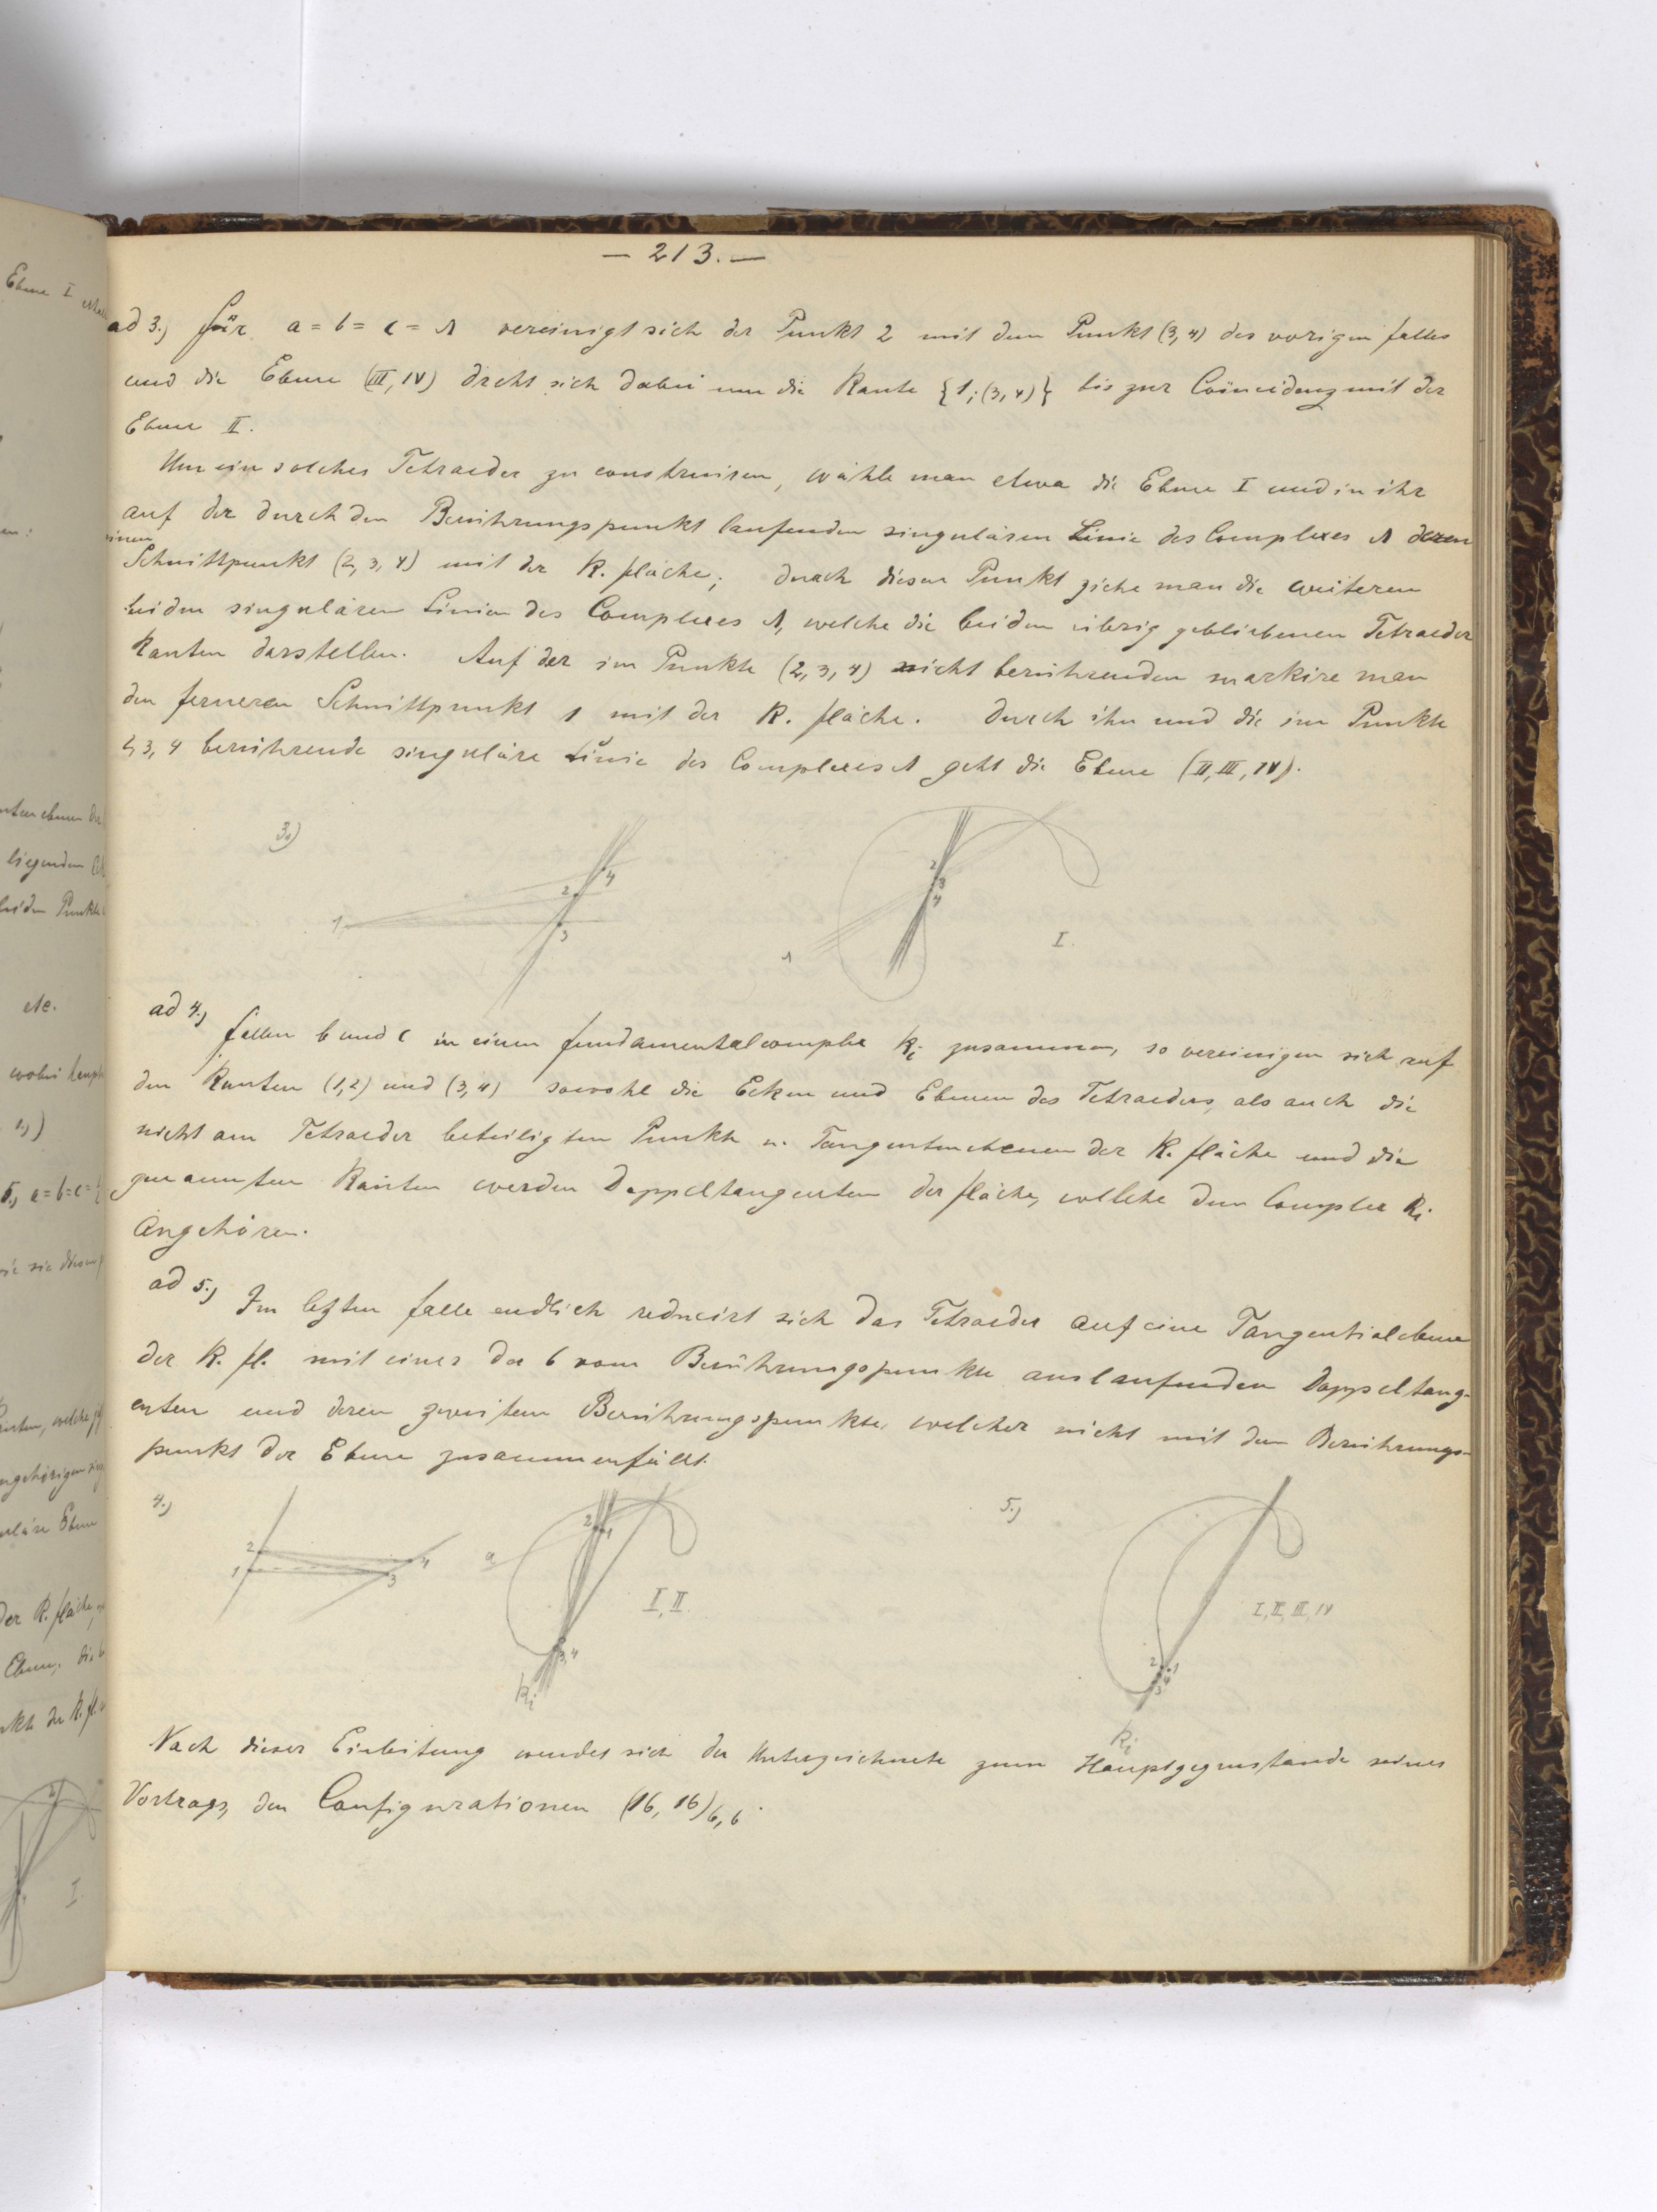 — 213. —
ad 3.) Für a = b = c = λ vereinigt sich der Punkt 2 mit dem Punkt (3, 4) des vorigen Falles
und die Ebene (III, IV) dreht sich dabei um die Kante {1; (3, 4)} bis zur Coïncidenz mit der
Ebene II.
Um ein solches Tetraeder zu construiren, wähle man etwa die Ebene I und in ihr
auf der durch den Berührungspunkt laufenden singulären Linie des Complexes λ deren
einen
Schnittpunkt (2, 3, 4) mit der K. fläche; durch diesen Punkt ziehe man die weiteren
beiden singulären Linien des Complexes λ, welche die beiden übrig gebliebenen Tetraeder
Kanten darstellen. Auf der im Punkte (2, 3, 4) nicht berührenden markire man
den ferneren Schnittpunkt 1 mit der K. fläche. Durch ihn und die im Punkte
2, 3, 4 berührende singuläre Linie des Complexes λ geht die Ebene (II, III, IV).
3.)
1 2 3 4
2 3 4 1 I.
ad 4.) Fallen b und c in einen Fundamentalcomplex Ki zusammen, so vereinigen sich auf
den Kanten (1, 2) und (3, 4) sowohl die Ecken und Ebenen des Tetraeders, als auch die
nicht am Tetraeder beteiligten Punkte u. Tangentenebenen der K. fläche und die
genannten Kanten werden Doppeltangenten der Fläche, welche dem Complex Ki
angehören.
ad 5.) Im letzten Falle endlich reducirt sich das Tetraeder auf eine Tangentialebene
der K. fl. mit einer der 6 vom Berührungspunkte auslaufenden Doppeltang-
enten und deren zweitem Berührungspunkte, welcher nicht mit dem Berührungs-
punkt der Ebene zusammenfällt.
4.)
2 1 4 3
a 2 1 3, 4 I, II. Ki
5.)
2 1 3 4 I, II, III, IV Ki
Nach dieser Einleitung wendet sich der Unterzeichnete zum Hauptgegenstande seines
Vortrags, den Configurationen (16, 16)6,6.
Ebene I
etc.
wobei
5.) a = b = c =
der K. fläche,
Ebene,
I.